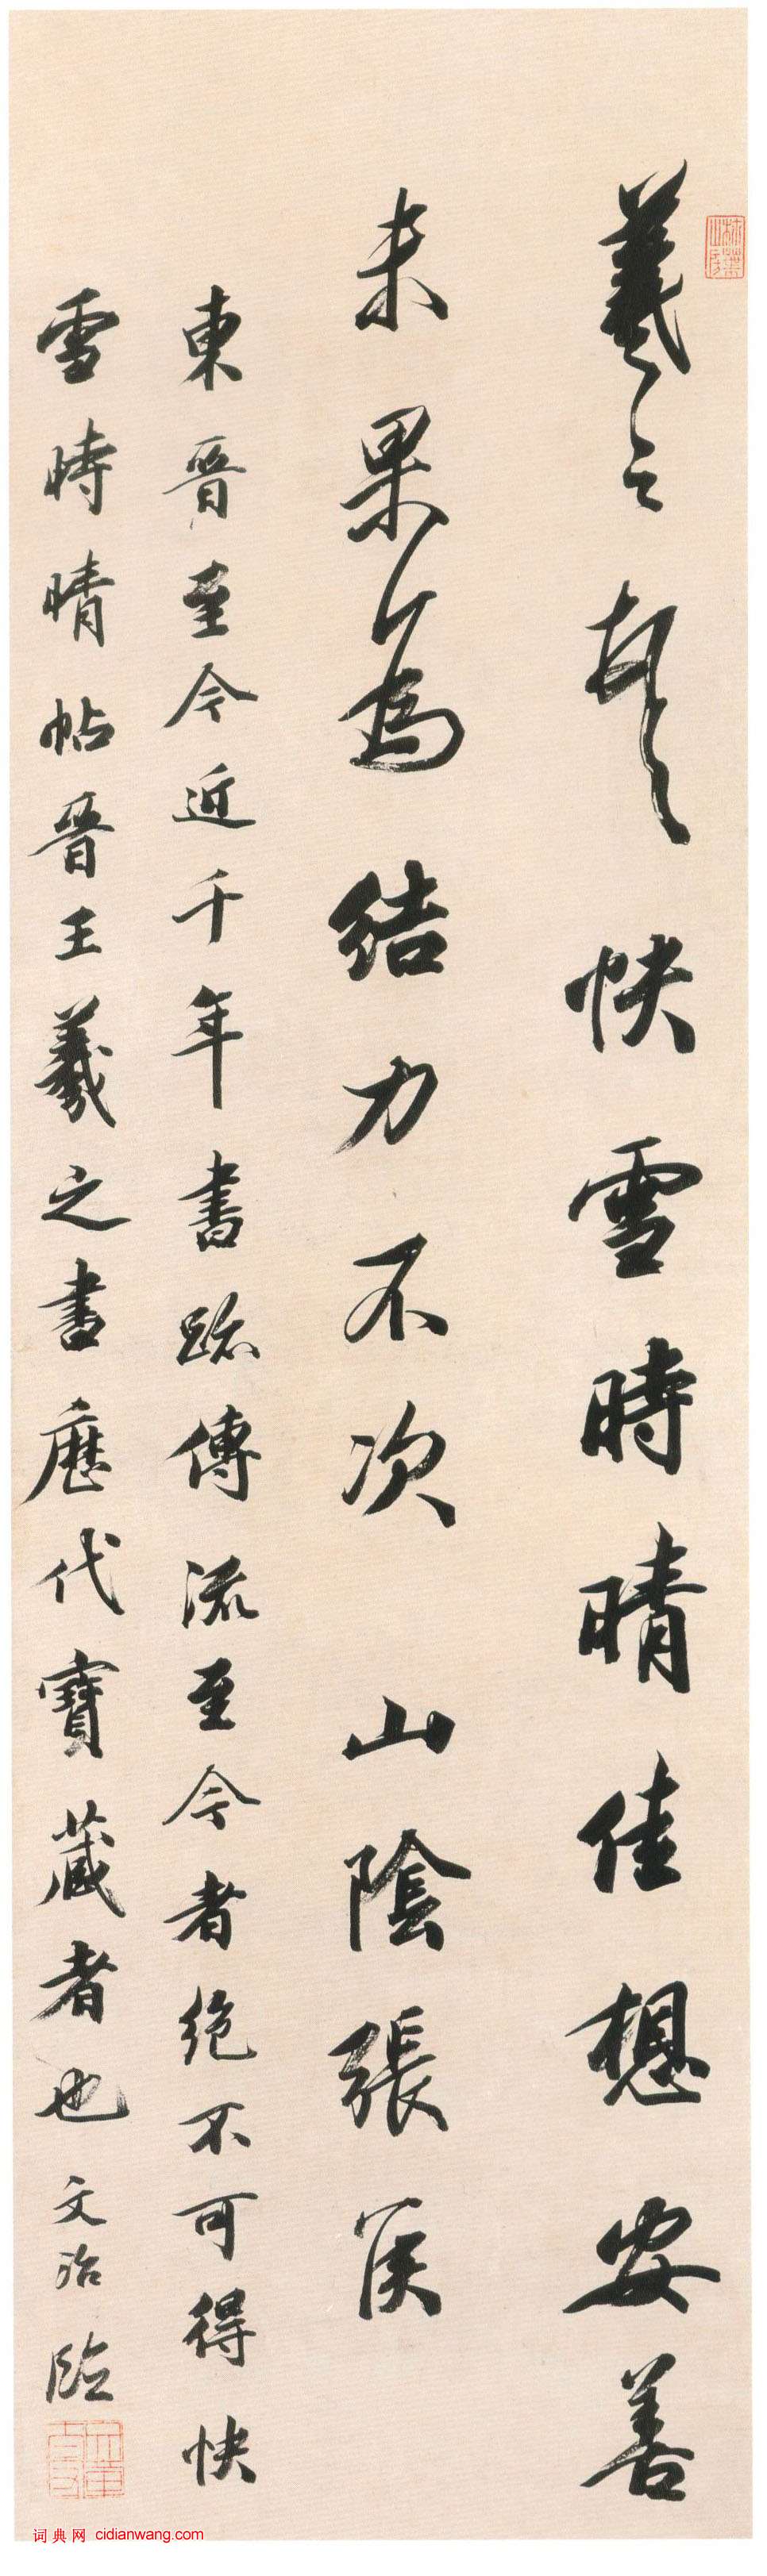 羲之頓首快雪時晴佳想安善
未果為結力不次山陰張侯
東晉至今近千年書跡傳流至今者絶不可得快
雪時晴帖晉王羲之書歷代寶藏者也文治臨
词典网 cidianwang.com